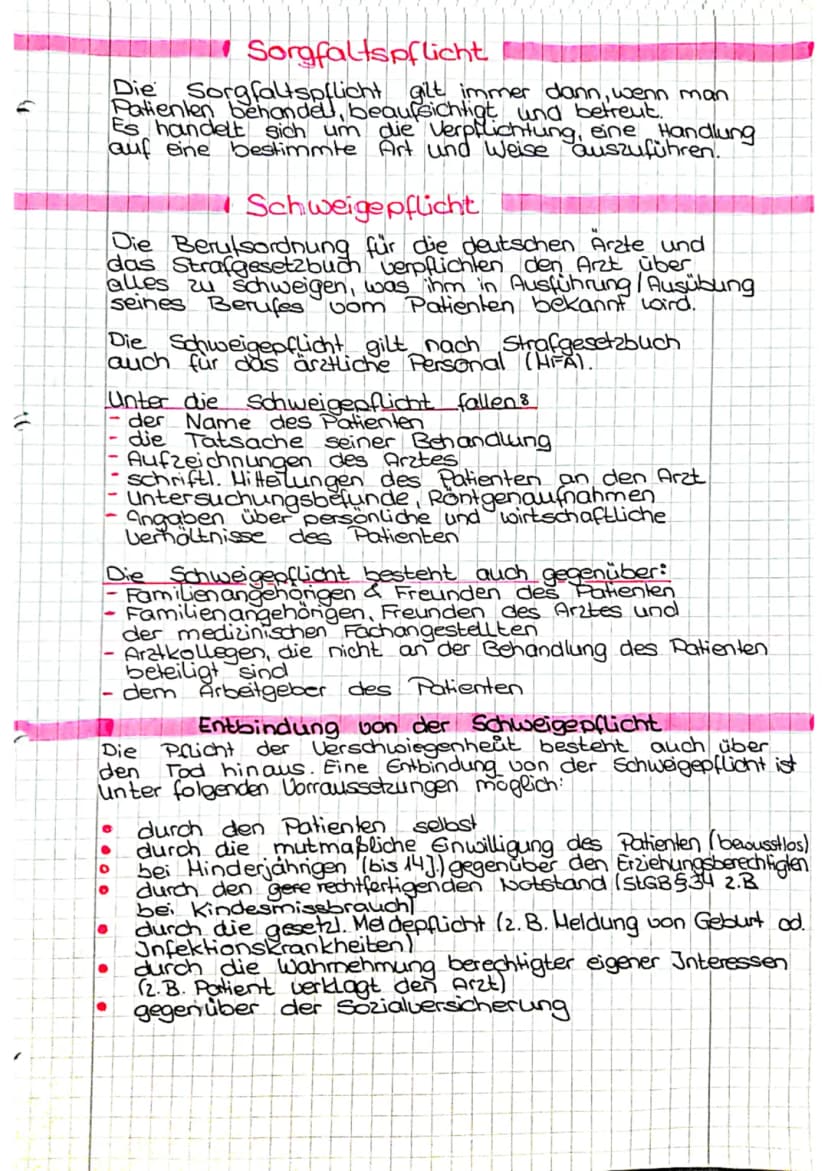 Sorgfaltspflicht
Die Sorgfaltspflicht gilt immer dann, wenn man
Patienten behandelt, beaufsichtigt und betreut.
Es handelt sich um die Verpflichtung, eine Handlung
auf eine bestimmte Art und Weise auszuführen.
Schweigepflicht
Die Berufsordnung für die deutschen Ärzte und
das Strafgesetzbuch verpflichten den Arzt über
alles zu schweigen, was ihm in Ausführung / Ausübung
seines Berufes vom Patienten bekannt wird.
Die Schweigepflicht gilt nach Strafgesetzbuch
auch für das ärztliche Personal (MFA).
Unter die Schweigepflicht fallen:
- der Name des Patienten
- die Tatsache seiner Behandlung
- Aufzeichnungen des Arztes
- schriftl. Mitteilungen des Patienten an den Arzt
- Untersuchungsbefunde, Röntgenaufnahmen
- Angaben über persönliche und wirtschaftliche
Verhältnisse des Patienten
Die Schweigepflicht besteht auch gegenüber:
- Familienangehörigen & Freunden des Patienten
- Familienangehörigen, Freunden des Arztes und
der medizinischen Fachangestellten
- Arztkollegen, die nicht an der Behandlung des Patienten
beteiligt sind
- dem Arbeitgeber des Patienten
Entbindung von der Schweigepflicht
Die Pflicht der Verschwiegenheit besteht auch über
den Tod hinaus. Eine Entbindung von der Schweigepflicht ist
unter folgenden Vorraussetzungen möglich:
• durch den Patienten selbst
• durch die mutmaßliche Einwilligung des Patienten (bewusstlos)
• bei Minderjährigen (bis 14J.) gegenüber den Erziehungsberechtigten
• durch den gere rechtfertigenden Notstand (StGB §34 z.B
bei Kindesmissbrauch)
• durch die gesetzl. Meldepflicht (z.B. Meldung von Geburt od.
Infektionskrankheiten)
• durch die Wahrnehmung berechtigter eigener Interessen
(z.B. Patient verklagt den Arzt)
• gegenüber der Sozialversicherung